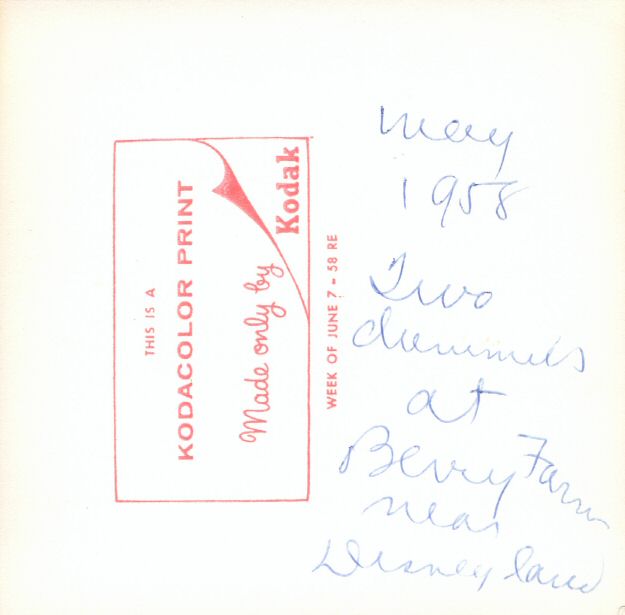 THIS IS A
KODACOLOR PRINT
Made only by
Kodak
WEEK OF JUNE 7 - 58 RE
May
1958
Two
dummies
at
Berry Farm
near
Disneyland